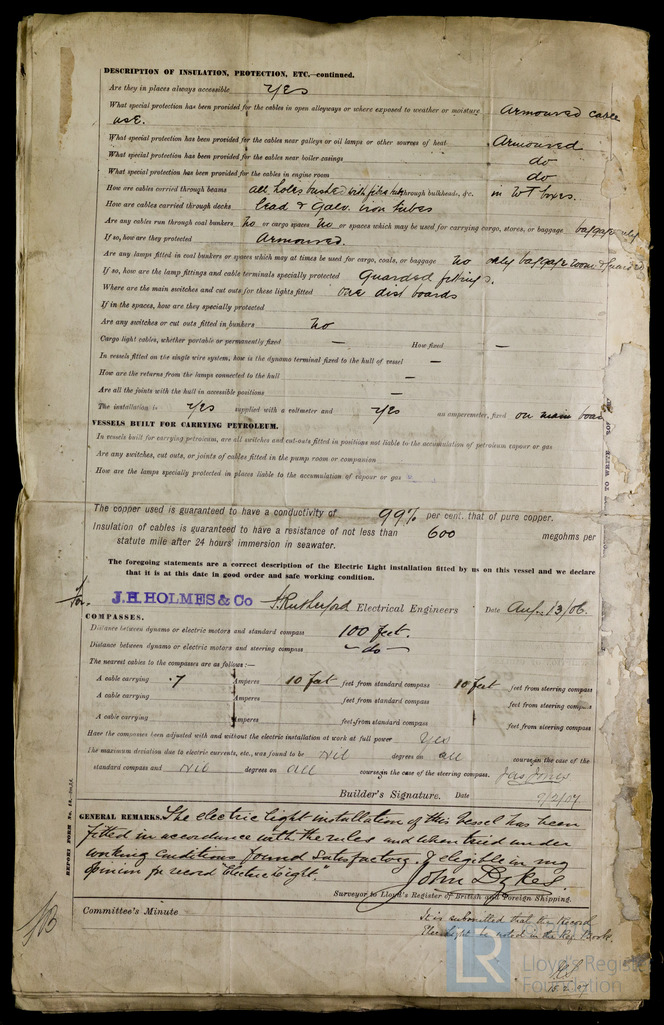 DESCRIPTION OF INSULATION, PROTECTION, ETC.—continued.
Are they in places always accessible Yes
What special protection has been provided for the cables in open alleyways or where exposed to weather or moisture Armoured cable
use.
What special protection has been provided for the cables near galleys or oil lamps or other sources of heat Armoured
What special protection has been provided for the cables near boiler casings do
What special protection has been provided for the cables in engine room do
How are cables carried through beams all holes bushed with fibre through bulkheads, &c. in WT boxes.
How are cables carried through decks lead & Galv. iron tubes
Are any cables run through coal bunkers No or cargo spaces No or spaces which may be used for carrying cargo, stores, or baggage baggage only
If so, how are they protected Armoured.
Are any lamps fitted in coal bunkers or spaces which may at times be used for cargo, coals, or baggage No only baggage room & guarded
If so, how are the lamp fittings and cable terminals specially protected Guarded fittings.
Where are the main switches and cut outs for these lights fitted on dist boards
If in the spaces, how are they specially protected
Are any switches or cut outs fitted in bunkers No
Cargo light cables, whether portable or permanently fixed — How fixed —
In vessels fitted on the single wire system, how is the dynamo terminal fixed to the hull of vessel —
How are the returns from the lamps connected to the hull —
Are all the joints with the hull in accessible positions —
The installation is Yes supplied with a voltmeter and Yes an amperemeter, fixed on main board
VESSELS BUILT FOR CARRYING PETROLEUM.
In vessels built for carrying petroleum, are all switches and cut-outs fitted in positions not liable to the accumulation of petroleum vapour or gas
Are any switches, cut outs, or joints of cables fitted in the pump room or companion
How are the lamps specially protected in places liable to the accumulation of vapour or gas
The copper used is guaranteed to have a conductivity of 99% per cent. that of pure copper.
Insulation of cables is guaranteed to have a resistance of not less than 600 megohms per
statute mile after 24 hours' immersion in seawater.
The foregoing statements are a correct description of the Electric Light installation fitted by us on this vessel and we declare
that it is at this date in good order and safe working condition.
For. J.H. HOLMES & Co J. Rutherford Electrical Engineers Date Aug. 13/06.
COMPASSES.
Distance between dynamo or electric motors and standard compass 100 feet.
Distance between dynamo or electric motors and steering compass — do —
The nearest cables to the compasses are as follows:—
A cable carrying .7 Amperes 10 feet feet from standard compass 10 feet feet from steering compass
A cable carrying Amperes feet from standard compass feet from steering compass
A cable carrying Amperes feet from standard compass feet from steering compass
Have the compasses been adjusted with and without the electric installation at work at full power Yes
The maximum deviation due to electric currents, etc., was found to be Nil degrees on all course in the case of the
standard compass and Nil degrees on all course in the case of the steering compass. Jas Jones
Builder's Signature. Date 9/2/07
GENERAL REMARKS. The electric light installation of this vessel has been
fitted in accordance with the rules and when tried under
working conditions found satisfactory. & eligible in my
opinion for record "Electric Light".
John Dykes.
Surveyor to Lloyd's Register of British and Foreign Shipping.
REPORT FORM No.
Committee's Minute
It is submitted that the Record
Elec light be noted in the Reg. Book.
LR
Lloyd's Register
Foundation
15.2.07